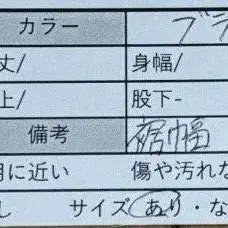 カラー ブラ
丈/ 身幅/
上/ 股下-
備考 裾幅
に近い 傷や汚れな
し サイズ あり・な